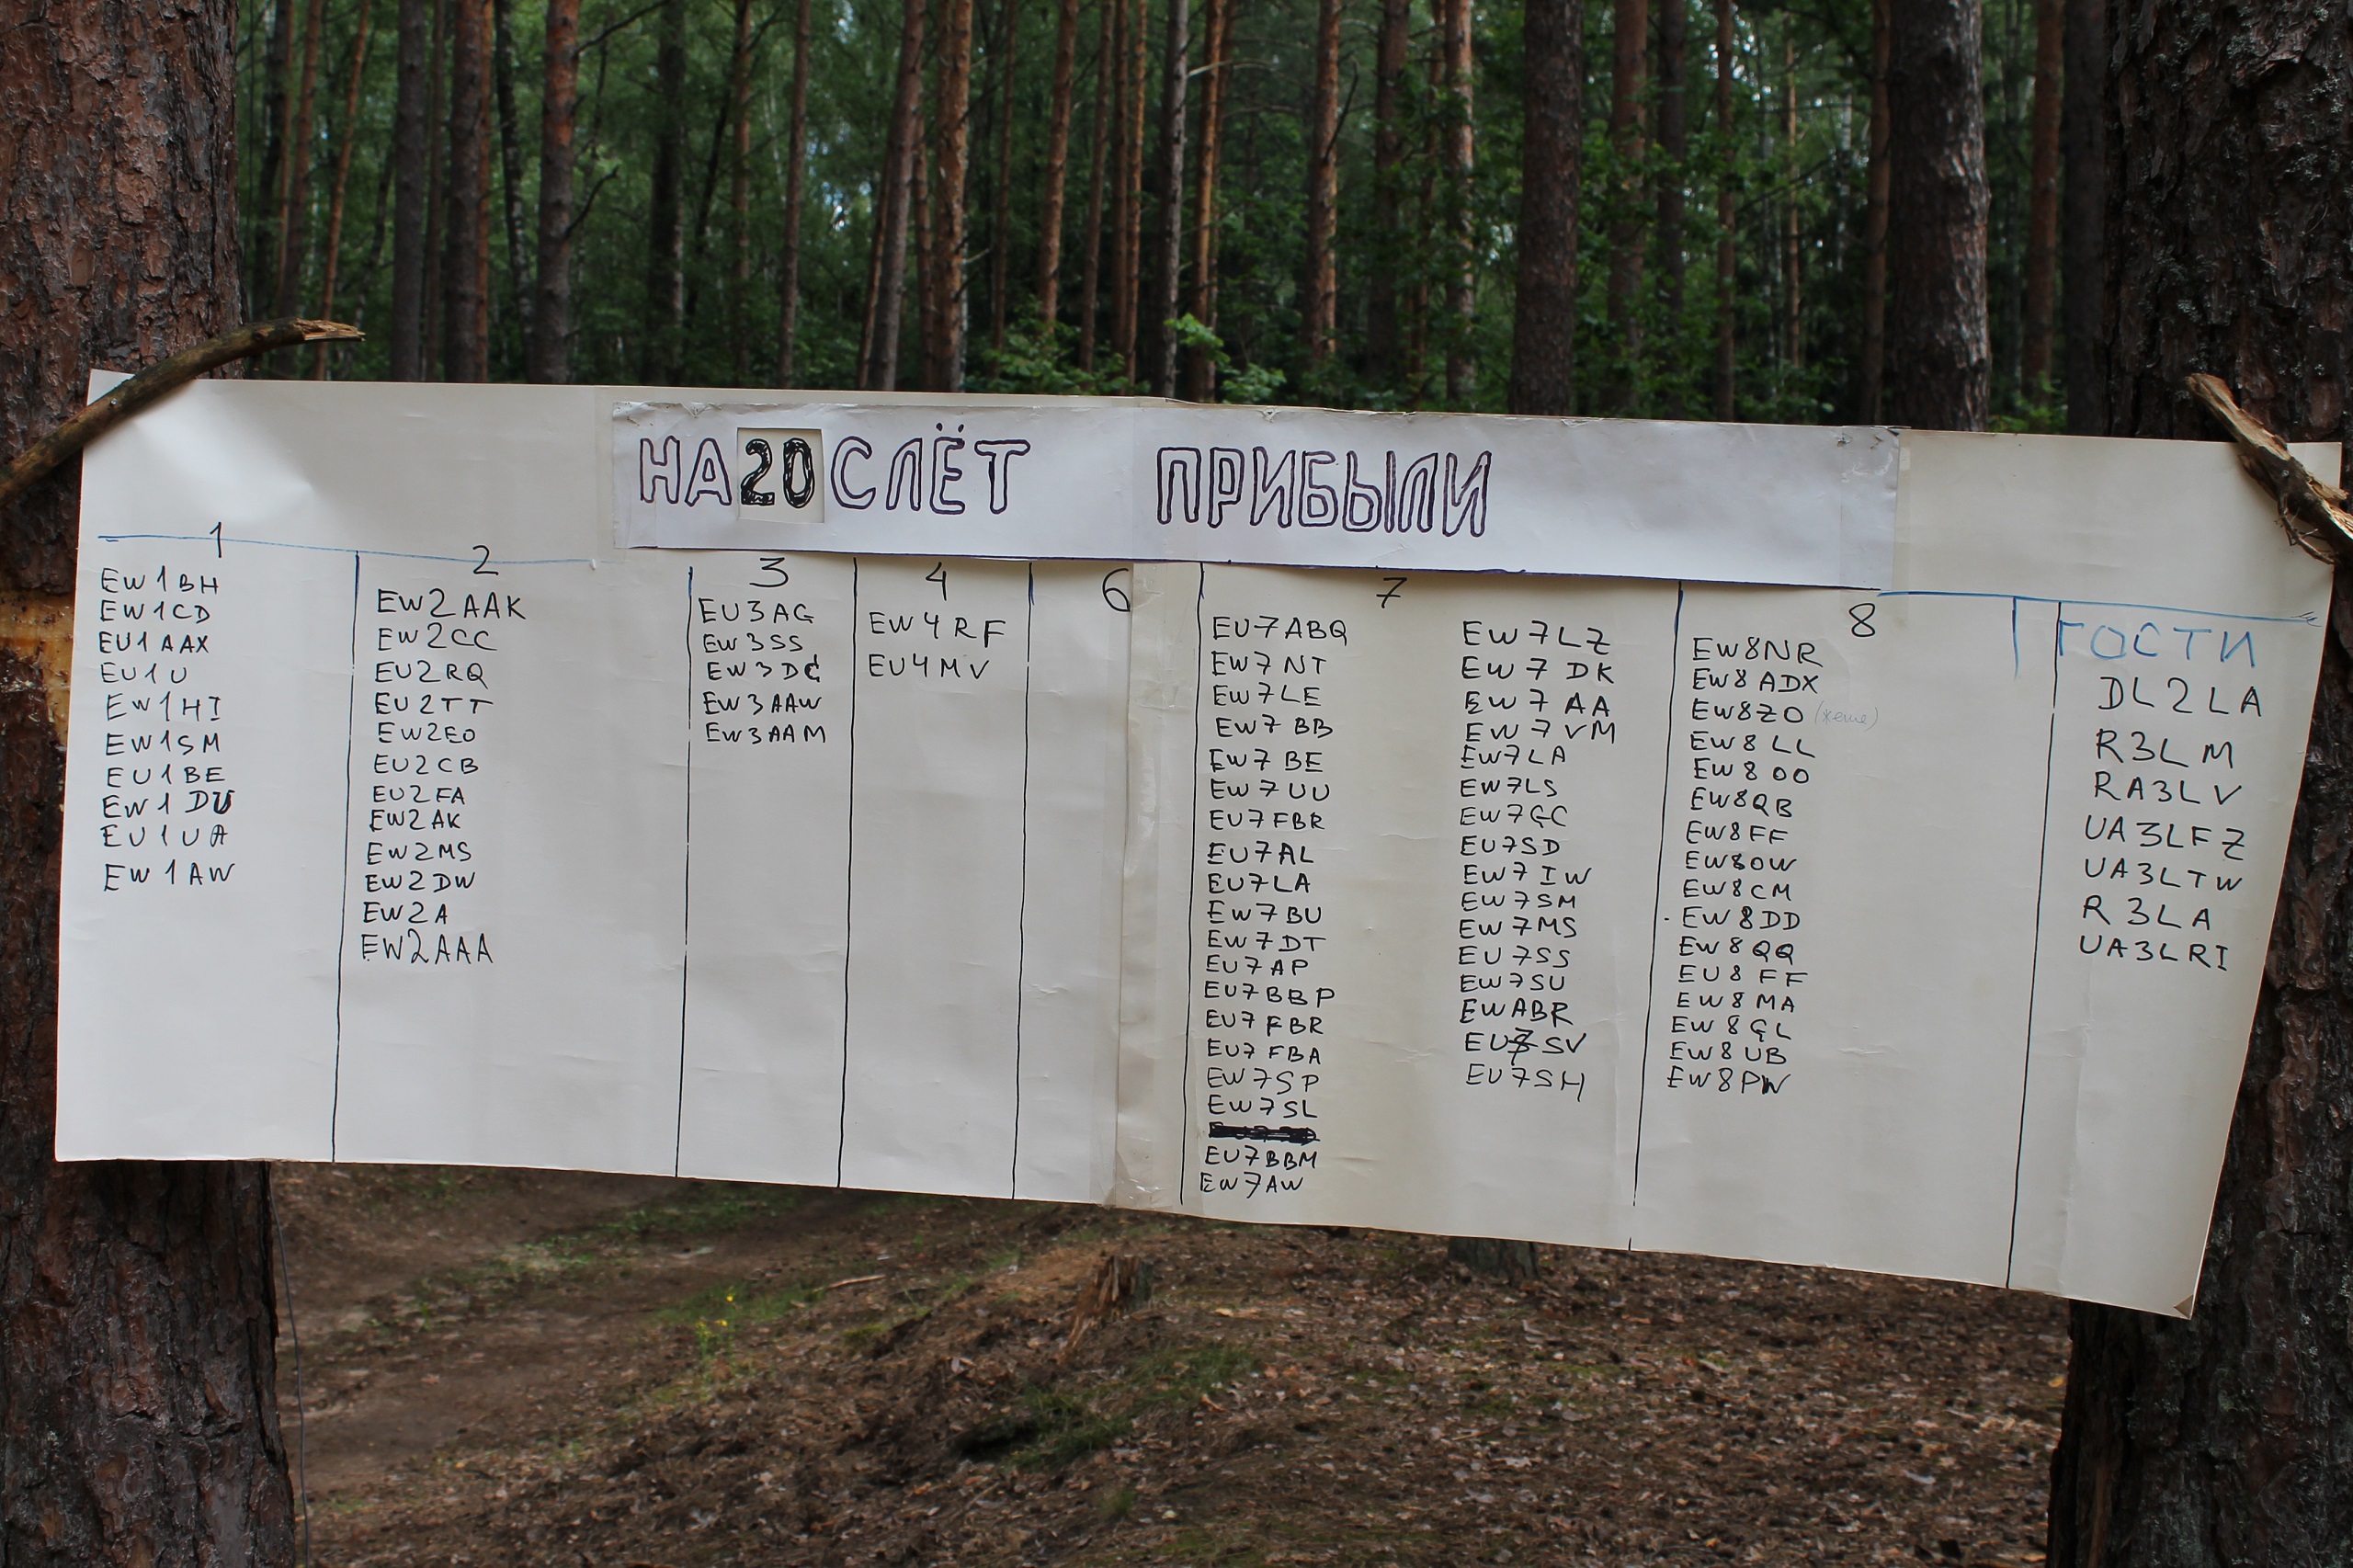 НА 20 СЛЁТ ПРИБЫЛИ
1
EW1BH
EW1CD
EU1AAX
EU1U
EW1HI
EW1SM
EU1BE
EW1DU
EU1UA
EW1AW
2
EW2AAK
EW2CC
EU2RQ
EU2TT
EW2EO
EU2CB
EU2FA
EW2AK
EW2MS
EW2DW
EW2A
EW2AAA
3
EU3AG
EW3SS
EW3DC
EW3AAW
EW3AAM
4
EW4RF
EU4MV
6
7
EU7ABQ
EW7NT
EW7LE
EW7BB
EW7BE
EW7UU
EU7FBR
EU7AL
EU7LA
EW7BU
EW7DT
EU7AP
EU7BBP
EU7FBR
EU7FBA
EW7SP
EW7SL
EU7BBM
EW7AW
EW7LZ
EW7DK
EW7AA
EW7VM
EW7LA
EW7LS
EW7GC
EU7SD
EW7IW
EW7SM
EW7MS
EU7SS
EW7SU
EWABR
EU7SV
EU7SH
8
EW8NR
EW8ADX
EW8ZO
EW8LL
EW8OO
EW8QB
EW8FF
EW8OW
EW8CM
EW8DD
EW8QQ
EU8FF
EW8MA
EW8GL
EW8UB
EW8PW
ГОСТИ
DL2LA
R3LM
RA3LV
UA3LFZ
UA3LTW
R3LA
UA3LRI